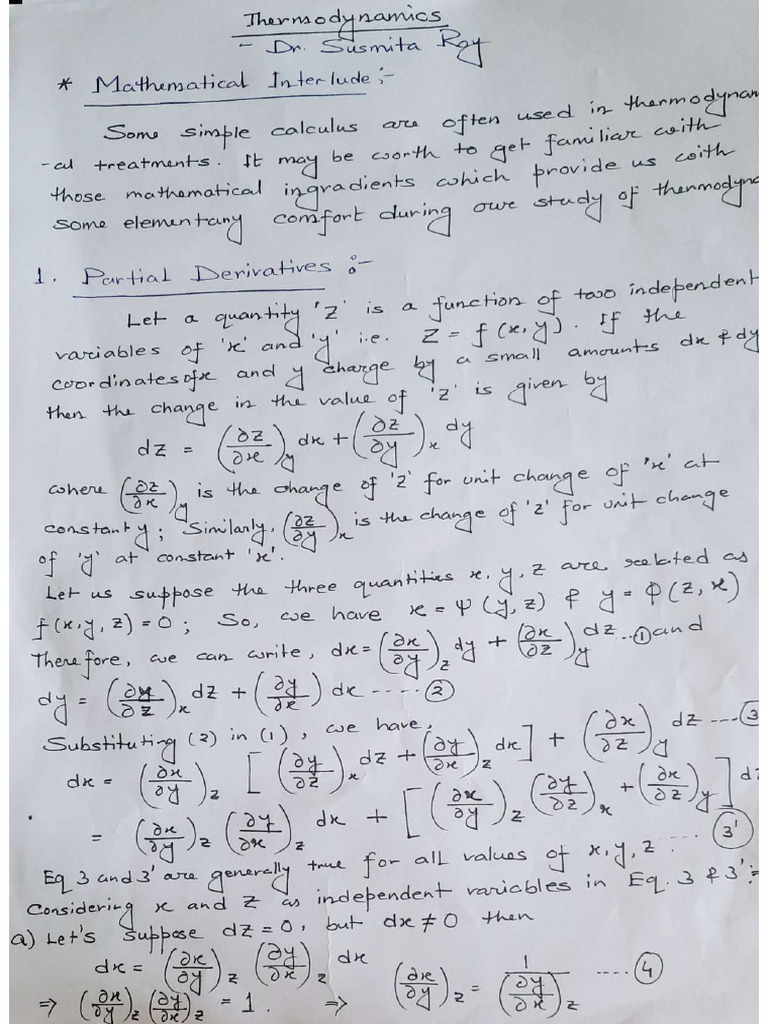 Thermodynamics
- Dr. Susmita Roy
* Mathematical Interlude :-
Some simple calculus are often used in thermodynam
-al treatments. It may be worth to get familiar with
those mathematical ingradients which provide us with
some elementary comfort during owr study of thermodyna
1. Partial Derivatives :-
Let a quantity 'z' is a function of two independent
variables of 'x' and 'y' i.e. z = f (x, y). If the
coordinates of x and y change by a small amounts dx & dy
then the change in the value of 'z' is given by
dz = (∂z/∂x)_y dx + (∂z/∂y)_x dy
where (∂z/∂x)_y is the change of 'z' for unit change of 'x' at
constant y; Similarly, (∂z/∂y)_x is the change of 'z' for unit change
of 'y' at constant 'x'.
Let us suppose the three quantities x, y, z are related as
f(x, y, z) = 0; So, we have x = Ψ (y, z) & y = Φ (z, x)
Therefore, we can write, dx = (∂x/∂y)_z dy + (∂x/∂z)_y dz ..① and
dy = (∂y/∂z)_x dz + (∂y/∂x) dx ---- ②
Substituting (2) in (1), we have,
dx = (∂x/∂y)_z [(∂y/∂z)_x dz + (∂y/∂x)_z dx] + (∂x/∂z)_y dz ---③
= (∂x/∂y)_z (∂y/∂x)_z dx + [(∂x/∂y)_z (∂y/∂z)_x + (∂x/∂z)_y] dz
.... (3')
Eq 3 and 3' are generally true for all values of x, y, z.
Considering x and z as independent variables in Eq. 3 & 3':-
a) Let's suppose dz = 0, but dx ≠ 0 then
dx = (∂x/∂y)_z (∂y/∂x)_z dx
⇒ (∂x/∂y)_z (∂y/∂x)_z = 1. ⇒ (∂x/∂y)_z = 1/(∂y/∂x)_z ....④